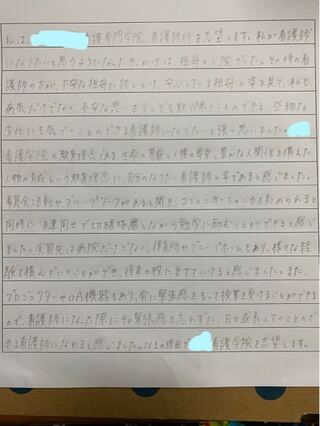 私は、看護専門学院、看護師科を志望します。私が看護師
になりたいと思うようになったきっかけは、祖母の入院でした。その時の看
護師の方が、不安な祖母に話しかけ、安心している祖母の姿を見て、私も
病気だけでなく、不安な思いを少しでも取り除くことのできる、些細な
変化にも気づくことのできる看護師になりたいと強く思いました。
看護学院の教育理念である、生命の尊厳と人権の尊重、豊かな人間性を備えた
人物の育成という教育理念に、自分のなりたい看護師の姿であると感じました。
委員会活動やグループワークがあると聞き、コミュニケーション力を高められると
同時に、生徒同士で切磋琢磨しながら勉学に励むことができると感じ
ました。実習先は病院だけでなく、保育所やグループホームもあり、様々な経
験を積んでいくことができ、将来の役に立てていけると感じました。また、
プロジェクターやOA機器もあり、常に緊張感をもって授業を受けることができる
ので、看護師になった際にその緊張感を忘れずに、日々成長していくことので
きる看護師になれると感じました。以上の理由で看護学院を志望します。